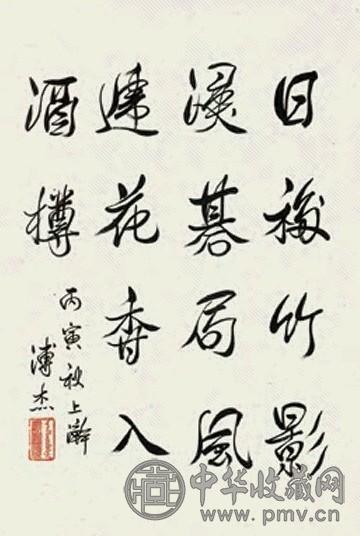 日移竹影
侵碁局風
遞花香入
酒樽
丙寅秋上澣
溥杰
中华收藏网
www.pmv.cn